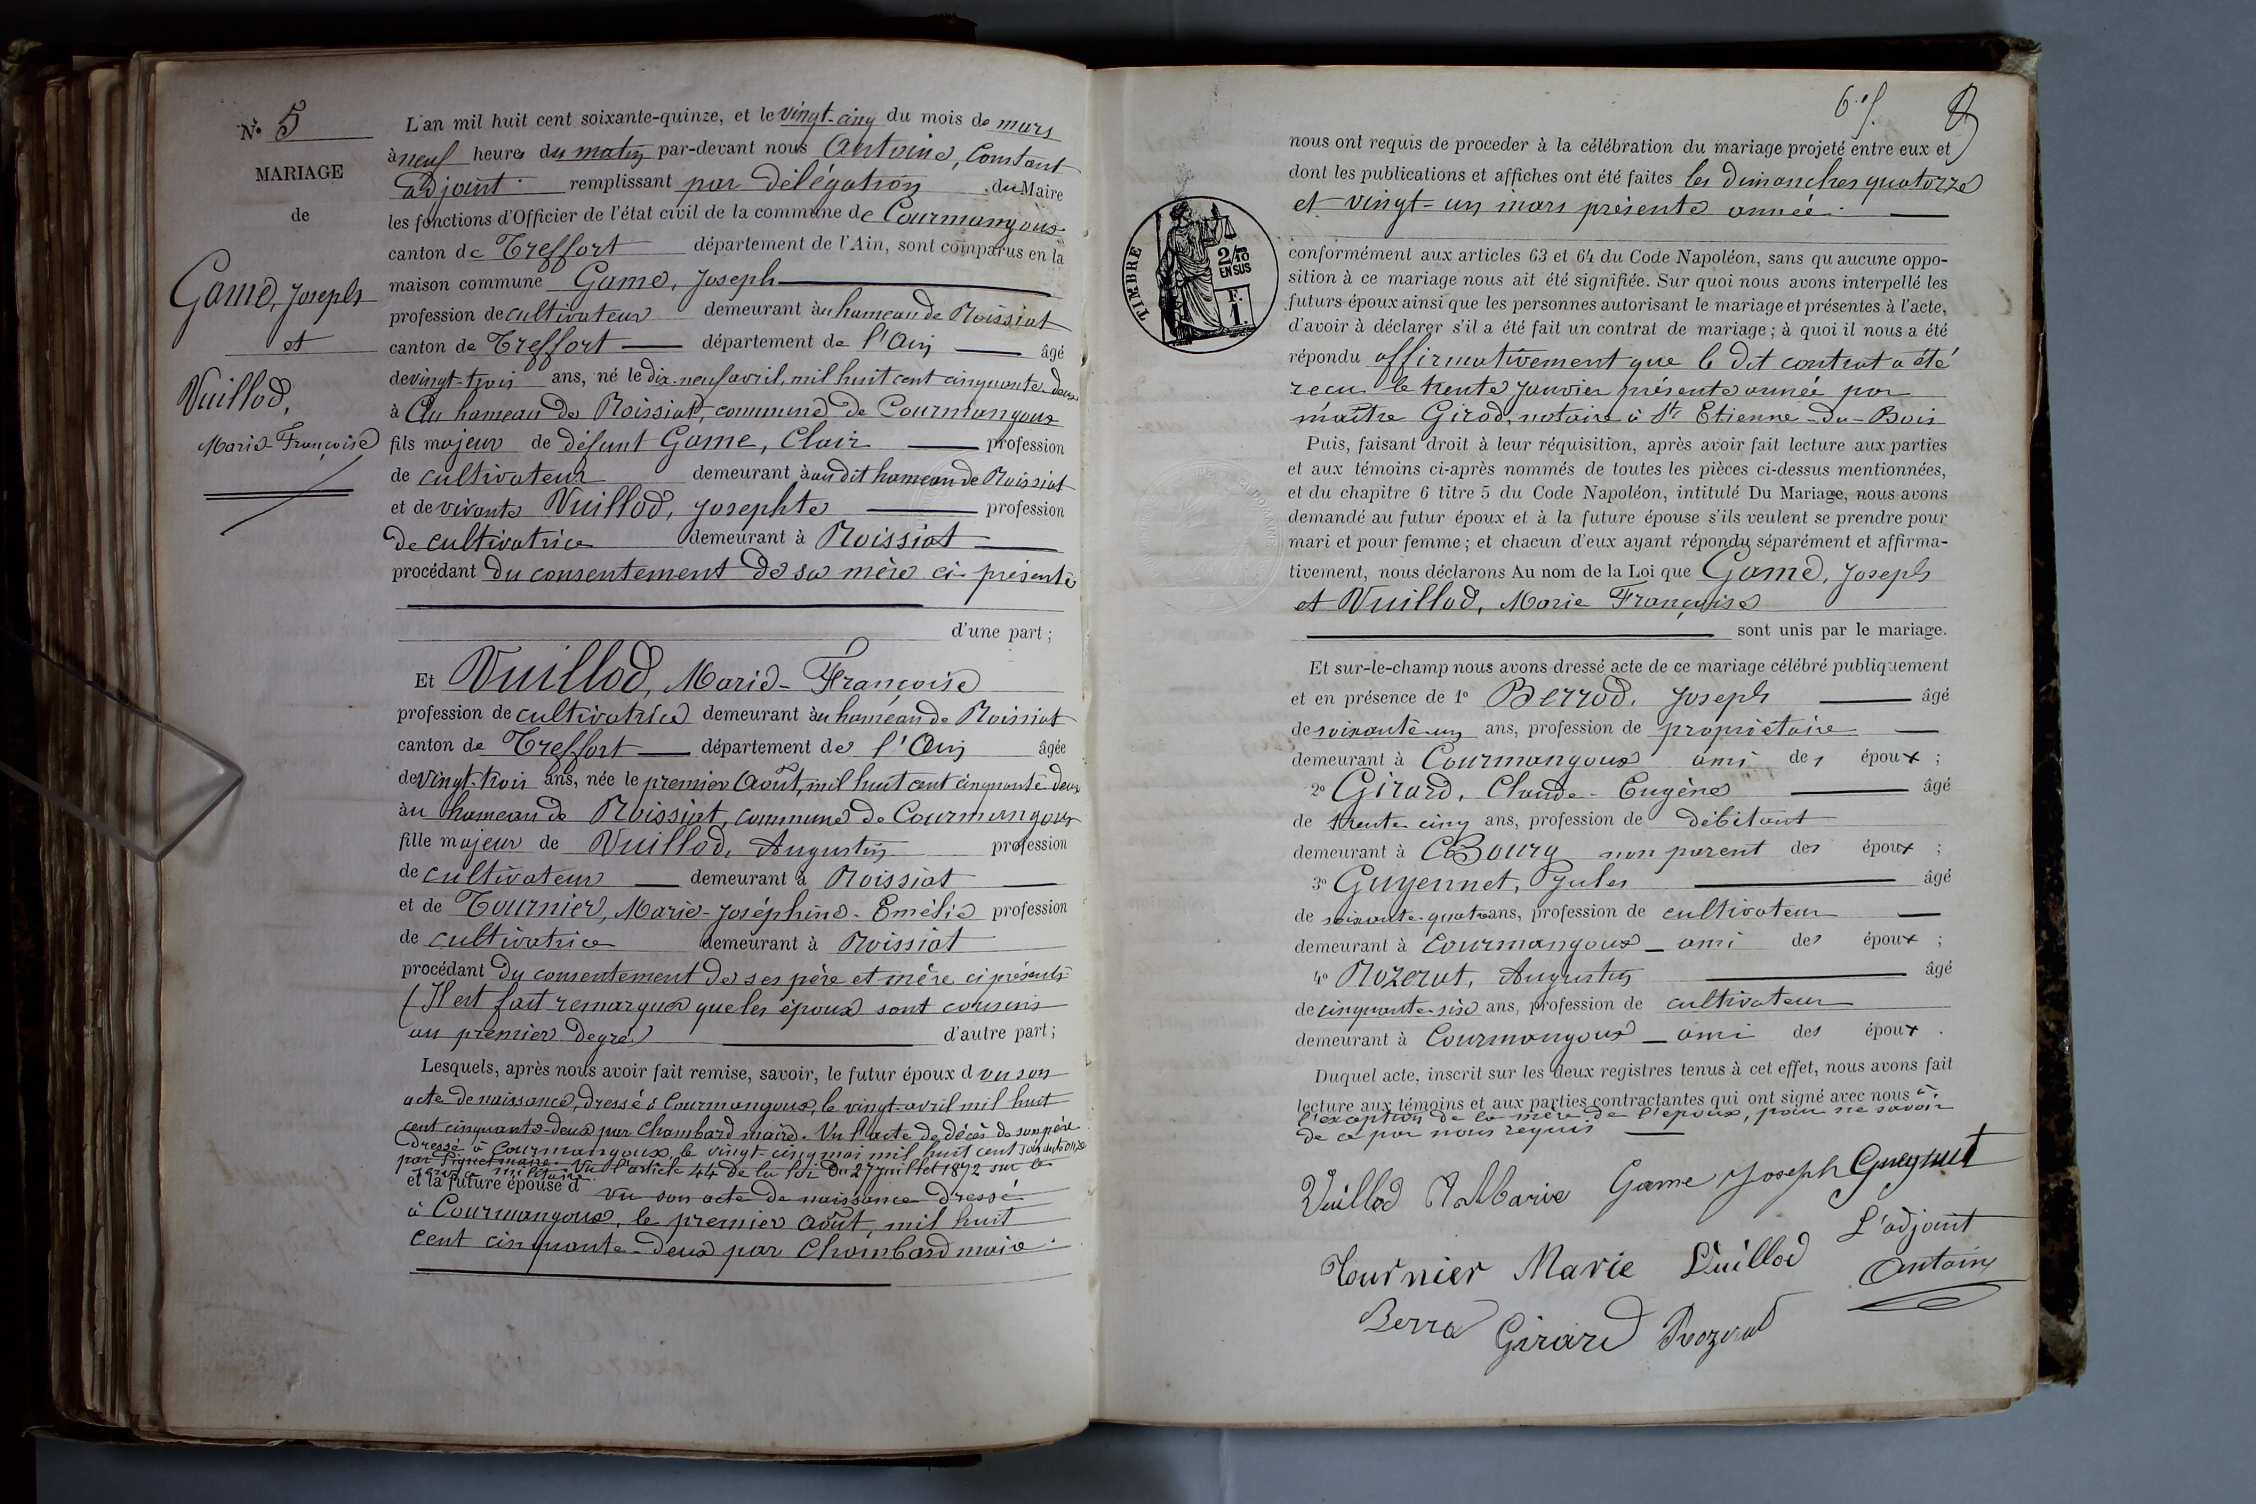 N° 5
MARIAGE
de
Game, Joseph
et
Vuillod,
Marie-Françoise
L'an mil huit cent soixante-quinze, et le vingt-cinq du mois de mars
à neuf heures du matin par-devant nous Antoine, Constant
adjoint remplissant par délégation du Maire
les fonctions d'Officier de l'état civil de la commune de Courmangoux
canton de Treffort département de l'Ain, sont comparus en la
maison commune Game, Joseph
profession de cultivateur demeurant à au hameau de Roissiat
canton de Treffort département de l'Ain âgé
de vingt-trois ans, né le dix-neuf avril, mil huit cent cinquante-deux
à Au hameau de Roissiat, commune de Courmangoux
fils majeur de défunt Game, Clair profession
de cultivateur demeurant à audit hameau de Roissiat
et de vivante Vuillod, Josephte profession
de cultivatrice demeurant à Roissiat
procédant du consentement de sa mère ci-présente
d'une part ;
Et Vuillod, Marie-Françoise
profession de cultivatrice demeurant à au hameau de Roissiat
canton de Treffort département de l'Ain âgée
de vingt-trois ans, née le premier Août, mil huit cent cinquante-deux
à au hameau de Roissiat, commune de Courmangoux
fille majeur de Vuillod, Augustin profession
de cultivateur demeurant à Roissiat
et de Tournier, Marie-Joséphine-Emélie profession
de cultivatrice demeurant à Roissiat
procédant du consentement de ses père et mère ci présents
(Il est fait remarquer que les époux sont cousins
au premier degré) d'autre part ;
Lesquels, après nous avoir fait remise, savoir, le futur époux d vu son
acte de naissance, dressé à Courmangoux, le vingt avril mil huit
cent cinquante-deux par Chambard maire. Vu l'acte de décès de son père
dressé à Courmangoux, le vingt-cinq mai mil huit cent soixante onze
par Piquet maire. Vu l'article 44 de la loi du 27 juillet 1872 sur le
service militaire
et la future épouse d vu son acte de naissance dressé
à Courmangoux, le premier août, mil huit
cent cinquante-deux par Chambard maire.
nous ont requis de proceder à la célébration du mariage projeté entre eux et
dont les publications et affiches ont été faites les dimanches quatorze
et vingt-un mars présente année.
TIMBRE
2/10
EN SUS
F.
1.
conformément aux articles 63 et 64 du Code Napoléon, sans qu'aucune oppo-
sition à ce mariage nous ait été signifiée. Sur quoi nous avons interpellé les
futurs époux ainsi que les personnes autorisant le mariage et présentes à l'acte,
d'avoir à déclarer s'il a été fait un contrat de mariage ; à quoi il nous a été
répondu affirmativement que le dit contrat a été
reçu le trente janvier présente année par
maître Girod, notaire à St Etienne-du-Bois
Puis, faisant droit à leur réquisition, après avoir fait lecture aux parties
et aux témoins ci-après nommés de toutes les pièces ci-dessus mentionnées,
et du chapitre 6 titre 5 du Code Napoléon, intitulé Du Mariage, nous avons
demandé au futur époux et à la future épouse s'ils veulent se prendre pour
mari et pour femme ; et chacun d'eux ayant répondu séparément et affirma-
tivement, nous déclarons Au nom de la Loi que Game, Joseph
et Vuillod, Marie Françoise
sont unis par le mariage.
Et sur-le-champ nous avons dressé acte de ce mariage célébré publiquement
et en présence de 1° Berrod, Joseph âgé
de soixante-un ans, profession de propriétaire
demeurant à Courmangoux ami des époux ;
2° Girard, Claude-Eugène âgé
de trente cinq ans, profession de débitant
demeurant à Bourg non parent des époux ;
3° Guyennet, Jules âgé
de soixante-quatre ans, profession de cultivateur
demeurant à Courmangoux ami des époux ;
4° Rozerat, Augustin âgé
de cinquante-six ans, profession de cultivateur
demeurant à Courmangoux ami des époux .
Duquel acte, inscrit sur les deux registres tenus à cet effet, nous avons fait
lecture aux témoins et aux parties contractantes qui ont signé avec nous à
l'exception de la mère de l'époux, pour ne savoir
de ce par nous requis
Vuillod Marie Game Joseph
L'adjoint
Tournier Marie Vuillod Antoine
Girard Rozerat